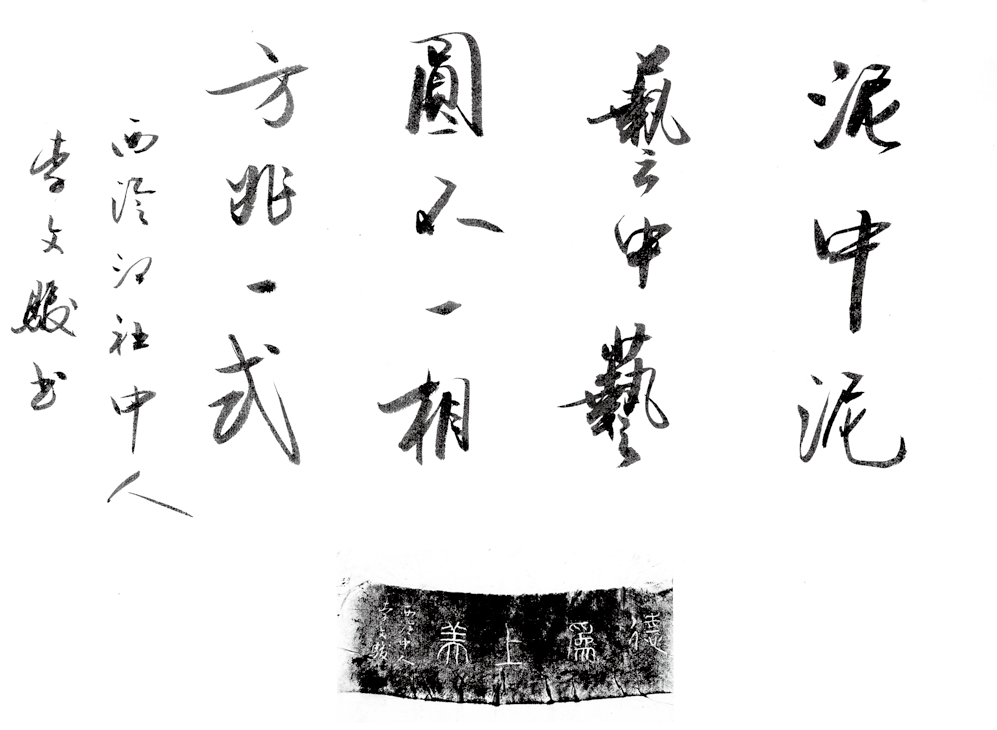 泥中泥
藝中藝
圓不一相
方非一式
西泠印社中人
李文駿书
德爲上美